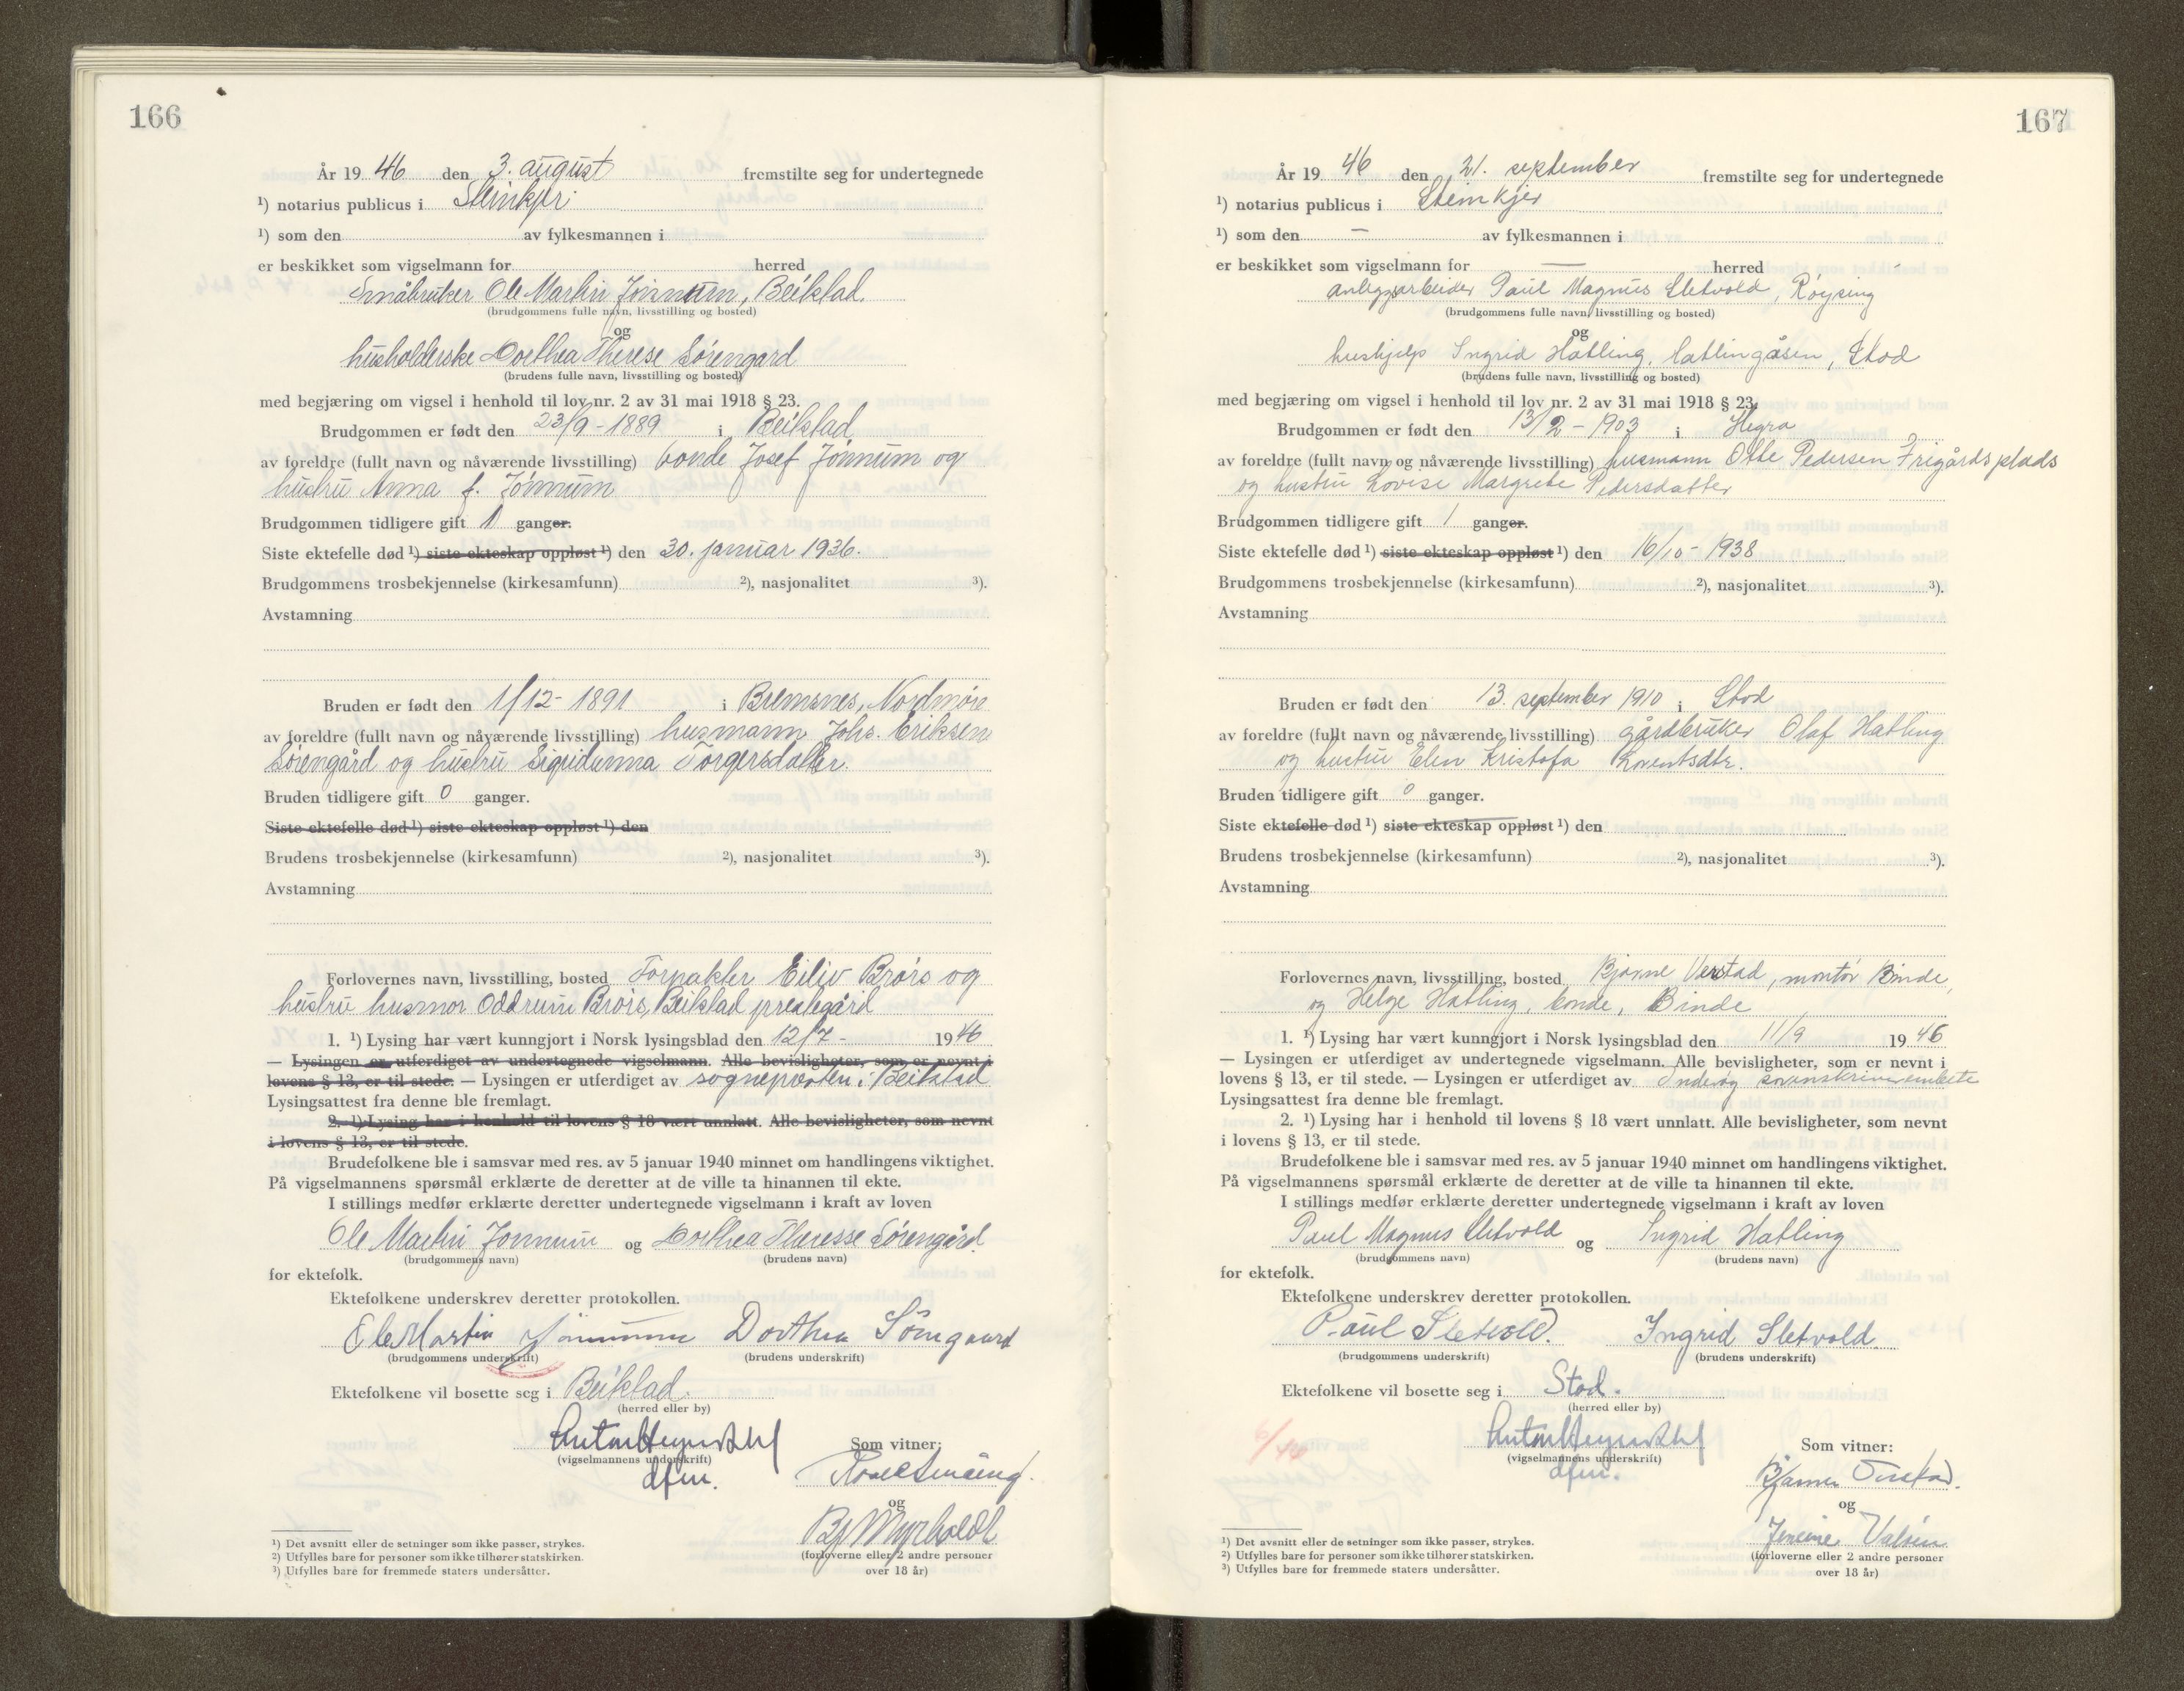 166
År 19 46 den 3. august fremstilte seg for undertegnede
¹) notarius publicus i Steinkjer
¹) som den av fylkesmannen i
er beskikket som vigselmann for herred
Småbruker Ole Martin Jønnum, Beitstad.
(brudgommens fulle navn, livsstilling og bosted)
og
husholderske Dorthea Therese Sørengård
(brudens fulle navn, livsstilling og bosted)
med begjæring om vigsel i henhold til lov nr. 2 av 31 mai 1918 § 23.
Brudgommen er født den 23/9 - 1889 i Beitstad
av foreldre (fullt navn og nåværende livsstilling) bonde Josef Jønnum og
hustru Anna f. Jønnum
Brudgommen tidligere gift 1 ganger.
Siste ektefelle død ¹) siste ekteskap oppløst ¹) den 30. januar 1936.
Brudgommens trosbekjennelse (kirkesamfunn) ²), nasjonalitet ³).
Avstamning
Bruden er født den 1/12 - 1891 i Bremsnes, Nordmøre
av foreldre (fullt navn og nåværende livsstilling) husmann Johs. Eriksen
Sørengård og hustru Sigridunna Torgersdatter.
Bruden tidligere gift 0 ganger.
Siste ektefelle død ¹) siste ekteskap oppløst ¹) den
Brudens trosbekjennelse (kirkesamfunn) ²), nasjonalitet ³).
Avstamning
Forlovernes navn, livsstilling, bosted Forpakter Eiliv Brørs og
hustru husmor Oddrun Brørs, Beitstad prestegård
1. ¹) Lysing har vært kunngjort i Norsk lysingsblad den 12/7 - 1946
— Lysingen er utferdiget av undertegnede vigselmann. Alle bevisligheter, som er nevnt i
lovens § 13, er til stede. — Lysingen er utferdiget av sognepresten i Beitstad
Lysingsattest fra denne ble fremlagt.
2. ¹) Lysing har i henhold til lovens § 18 vært unnlatt. Alle bevisligheter, som nevnt
i lovens § 13, er til stede.
Brudefolkene ble i samsvar med res. av 5 januar 1940 minnet om handlingens viktighet.
På vigselmannens spørsmål erklærte de deretter at de ville ta hinannen til ekte.
I stillings medfør erklærte deretter undertegnede vigselmann i kraft av loven
Ole Martin Jønnum og Dorthea Theresse Sørengård
(brudgommens navn) (brudens navn)
for ektefolk.
Ektefolkene underskrev deretter protokollen.
Ole Martin Jønnum Dorthea Sørngaard
(brudgommens underskrift) (brudens underskrift)
Ektefolkene vil bosette seg i Beitstad.
(herred eller by)
(vigselmannens underskrift)
dfm.
Som vitner:
og
(forloverne eller 2 andre personer
over 18 år)
¹) Det avsnitt eller de setninger som ikke passer, strykes.
²) Utfylles bare for personer som ikke tilhører statskirken.
³) Utfylles bare for fremmede staters undersåtter.
167
År 19 46 den 21. september fremstilte seg for undertegnede
¹) notarius publicus i Steinkjer
¹) som den — av fylkesmannen i
er beskikket som vigselmann for — herred
anleggsarbeider Paul Magnus Sletvold, Røysing
(brudgommens fulle navn, livsstilling og bosted)
og
hushjelp Ingrid Hatling, Hatlingåsen, Stod
(brudens fulle navn, livsstilling og bosted)
med begjæring om vigsel i henhold til lov nr. 2 av 31 mai 1918 § 23.
Brudgommen er født den 13/2 - 1903 i Hegra
av foreldre (fullt navn og nåværende livsstilling) husmann Otte Pedersen Frigårdsplads
og hustru Lovise Margrete Pedersdatter
Brudgommen tidligere gift 1 ganger.
Siste ektefelle død ¹) siste ekteskap oppløst ¹) den 16/10 - 1938
Brudgommens trosbekjennelse (kirkesamfunn) ²), nasjonalitet ³).
Avstamning
Bruden er født den 13. september 1910 i Stod
av foreldre (fullt navn og nåværende livsstilling) gårdbruker Olaf Hatling
og hustru Elen Kristofa Lorentsdtr.
Bruden tidligere gift 0 ganger.
Siste ektefelle død ¹) siste ekteskap oppløst ¹) den
Brudens trosbekjennelse (kirkesamfunn) ²), nasjonalitet ³).
Avstamning
Forlovernes navn, livsstilling, bosted Bjarne Verstad, montør Binde,
og Helge Hatling, bonde, Binde
1. ¹) Lysing har vært kunngjort i Norsk lysingsblad den 11/9 1946
— Lysingen er utferdiget av undertegnede vigselmann. Alle bevisligheter, som er nevnt i
lovens § 13, er til stede. — Lysingen er utferdiget av Inderøy sorenskriverembete
Lysingsattest fra denne ble fremlagt.
2. ¹) Lysing har i henhold til lovens § 18 vært unnlatt. Alle bevisligheter, som nevnt
i lovens § 13, er til stede.
Brudefolkene ble i samsvar med res. av 5 januar 1940 minnet om handlingens viktighet.
På vigselmannens spørsmål erklærte de deretter at de ville ta hinannen til ekte.
I stillings medfør erklærte deretter undertegnede vigselmann i kraft av loven
Paul Magnus Sletvold og Ingrid Hatling
(brudgommens navn) (brudens navn)
for ektefolk.
Ektefolkene underskrev deretter protokollen.
Paul Sletvold. Ingrid Sletvold.
(brudgommens underskrift) (brudens underskrift)
Ektefolkene vil bosette seg i Stod.
(herred eller by)
(vigselmannens underskrift)
dfm.
Som vitner:
Bjarne
og
(forloverne eller 2 andre personer
over 18 år)
¹) Det avsnitt eller de setninger som ikke passer, strykes.
²) Utfylles bare for personer som ikke tilhører statskirken.
³) Utfylles bare for fremmede staters undersåtter.